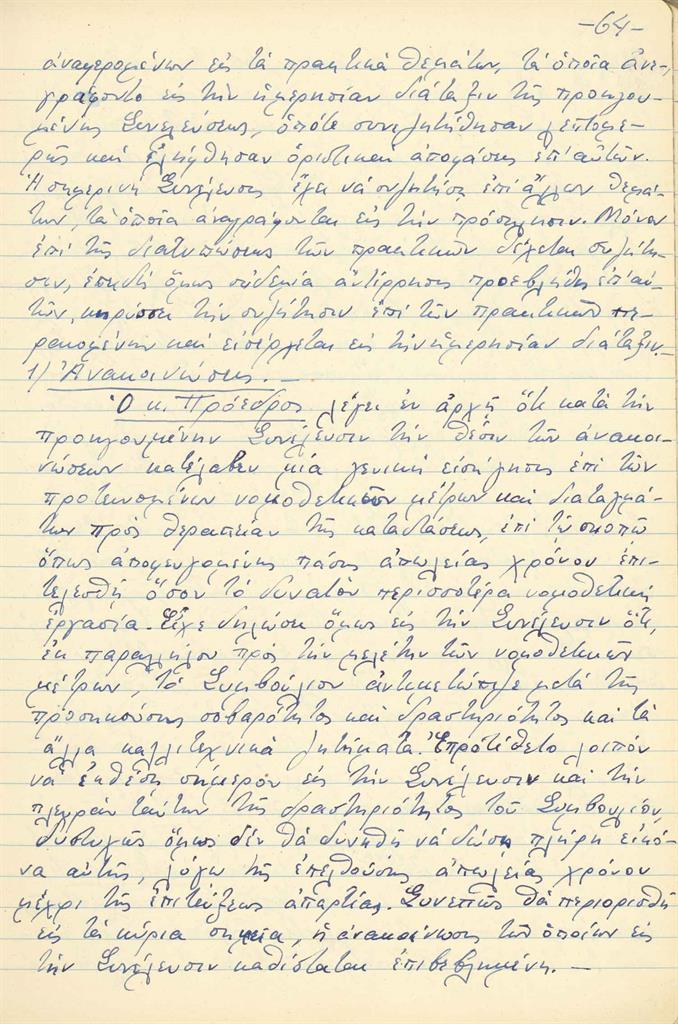 -64-
ἀναφερομένων εἰς τὰ πρακτικὰ θεμάτων, τὰ ὁποῖα ἀνε-
γράφοντο εἰς τὴν ἡμερησίαν διάταξιν τῆς προηγου-
μένης Συνελεύσεως, ὁπότε συνεζητήθησαν λεπτομε-
ρῶς καὶ ἐλήφθησαν ὁριστικαὶ ἀποφάσεις ἐπ' αὐτῶν.
Ἡ σημερινὴ Συνέλευσις ἔχει νὰ συζητήσῃ ἐπὶ ἄλλων θεμά-
των, τὰ ὁποῖα ἀναγράφονται εἰς τὴν πρόσκλησιν. Μόνον
ἐπὶ τῆς διατυπώσεως τῶν πρακτικῶν δέχεται συζήτη-
σιν, ἐπειδὴ ὅμως οὐδεμία ἀντίρρησις προεβλήθη ἐπ' αὐ-
τῶν, κηρύσσει τὴν συζήτησιν ἐπὶ τῶν πρακτικῶν πε-
ρατωμένην καὶ εἰσέρχεται εἰς τὴν ἡμερησίαν διάταξιν.-
1) Ἀνακοινώσεις. –
Ὁ κ. Πρόεδρος λέγει ἐν ἀρχῇ ὅτι κατὰ τὴν
προηγουμένην Συνέλευσιν τὴν θέσιν τῶν ἀνακοι-
νώσεων κατέλαβεν μία γενικὴ εἰσήγησις ἐπὶ τῶν
προτεινομένων νομοθετικῶν μέτρων καὶ διαταγμά-
των πρὸς θεραπείαν τῆς καταστάσεως, ἐπὶ τῷ σκοπῷ
ὅπως ἀποφευγομένης πάσης ἀπωλείας χρόνου ἐπι-
τελεσθῇ ὅσον τὸ δυνατὸν περισσοτέρα νομοθετικὴ
ἐργασία. Εἶχε δηλώσει ὅμως εἰς τὴν Συνέλευσιν ὅτι,
ἐκ παραλλήλου πρὸς τὴν μελέτην τῶν νομοθετικῶν
μέτρων, τὸ Συμβούλιον ἀντιμετώπιζε μετὰ τῆς
προσηκούσης σοβαρότητος καὶ δραστηριότητος καὶ τὰ
ἄλλα καλλιτεχνικὰ ζητήματα. Ἐπροτίθετο λοιπὸν
νὰ ἐκθέσῃ σήμερον εἰς τὴν Συνέλευσιν καὶ τὴν
πλευρὰν ταύτην τῆς δραστηριότητος τοῦ Συμβουλίου,
δυστυχῶς ὅμως δὲν θὰ δυνηθῇ νὰ δώσῃ πλήρη εἰκό-
να αὐτῆς, λόγω τῆς ἐπελθούσης ἀπωλείας χρόνου
μέχρι τῆς ἐπιτεύξεως ἀπαρτίας. Συνεπῶς θὰ περιορισθῇ
εἰς τὰ κύρια σημεῖα, ἡ ἀνακοίνωσις τῶν ὁποίων εἰς
τὴν Συνέλευσιν καθίσταται ἐπιβεβλημένη. –